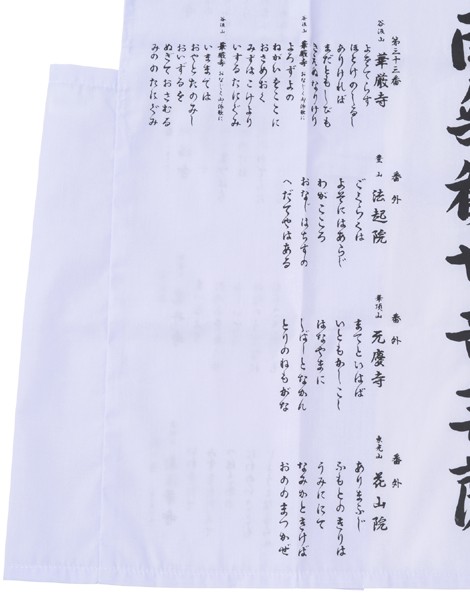 第三十三番
谷汲山 華厳寺
よをてらす
ほとけのしるし
ありければ
まだともしびも
きえぬなりけり
谷汲山 華厳寺 おなじくの御詠歌に
よろずよの
ねがいをここに
おさめおく
みずはこけより
いずるたにぐみ
谷汲山 華厳寺 おなじくの御詠歌に
いままでは
おやとたのみし
おいずるを
ぬぎておさむる
みののたにぐみ
番外
豊山 法起院
ごくらくは
よそにはあらじ
わがこころ
おなじはちすの
へだてやはある
番外
華頂山 元慶寺
まてといはば
いともかしこし
はなやまに
しばしとなかん
とりのねもがな
番外
東光山 花山院
ありまふじ
ふもとのきりは
うみににて
なみかときけば
おののまつかぜ